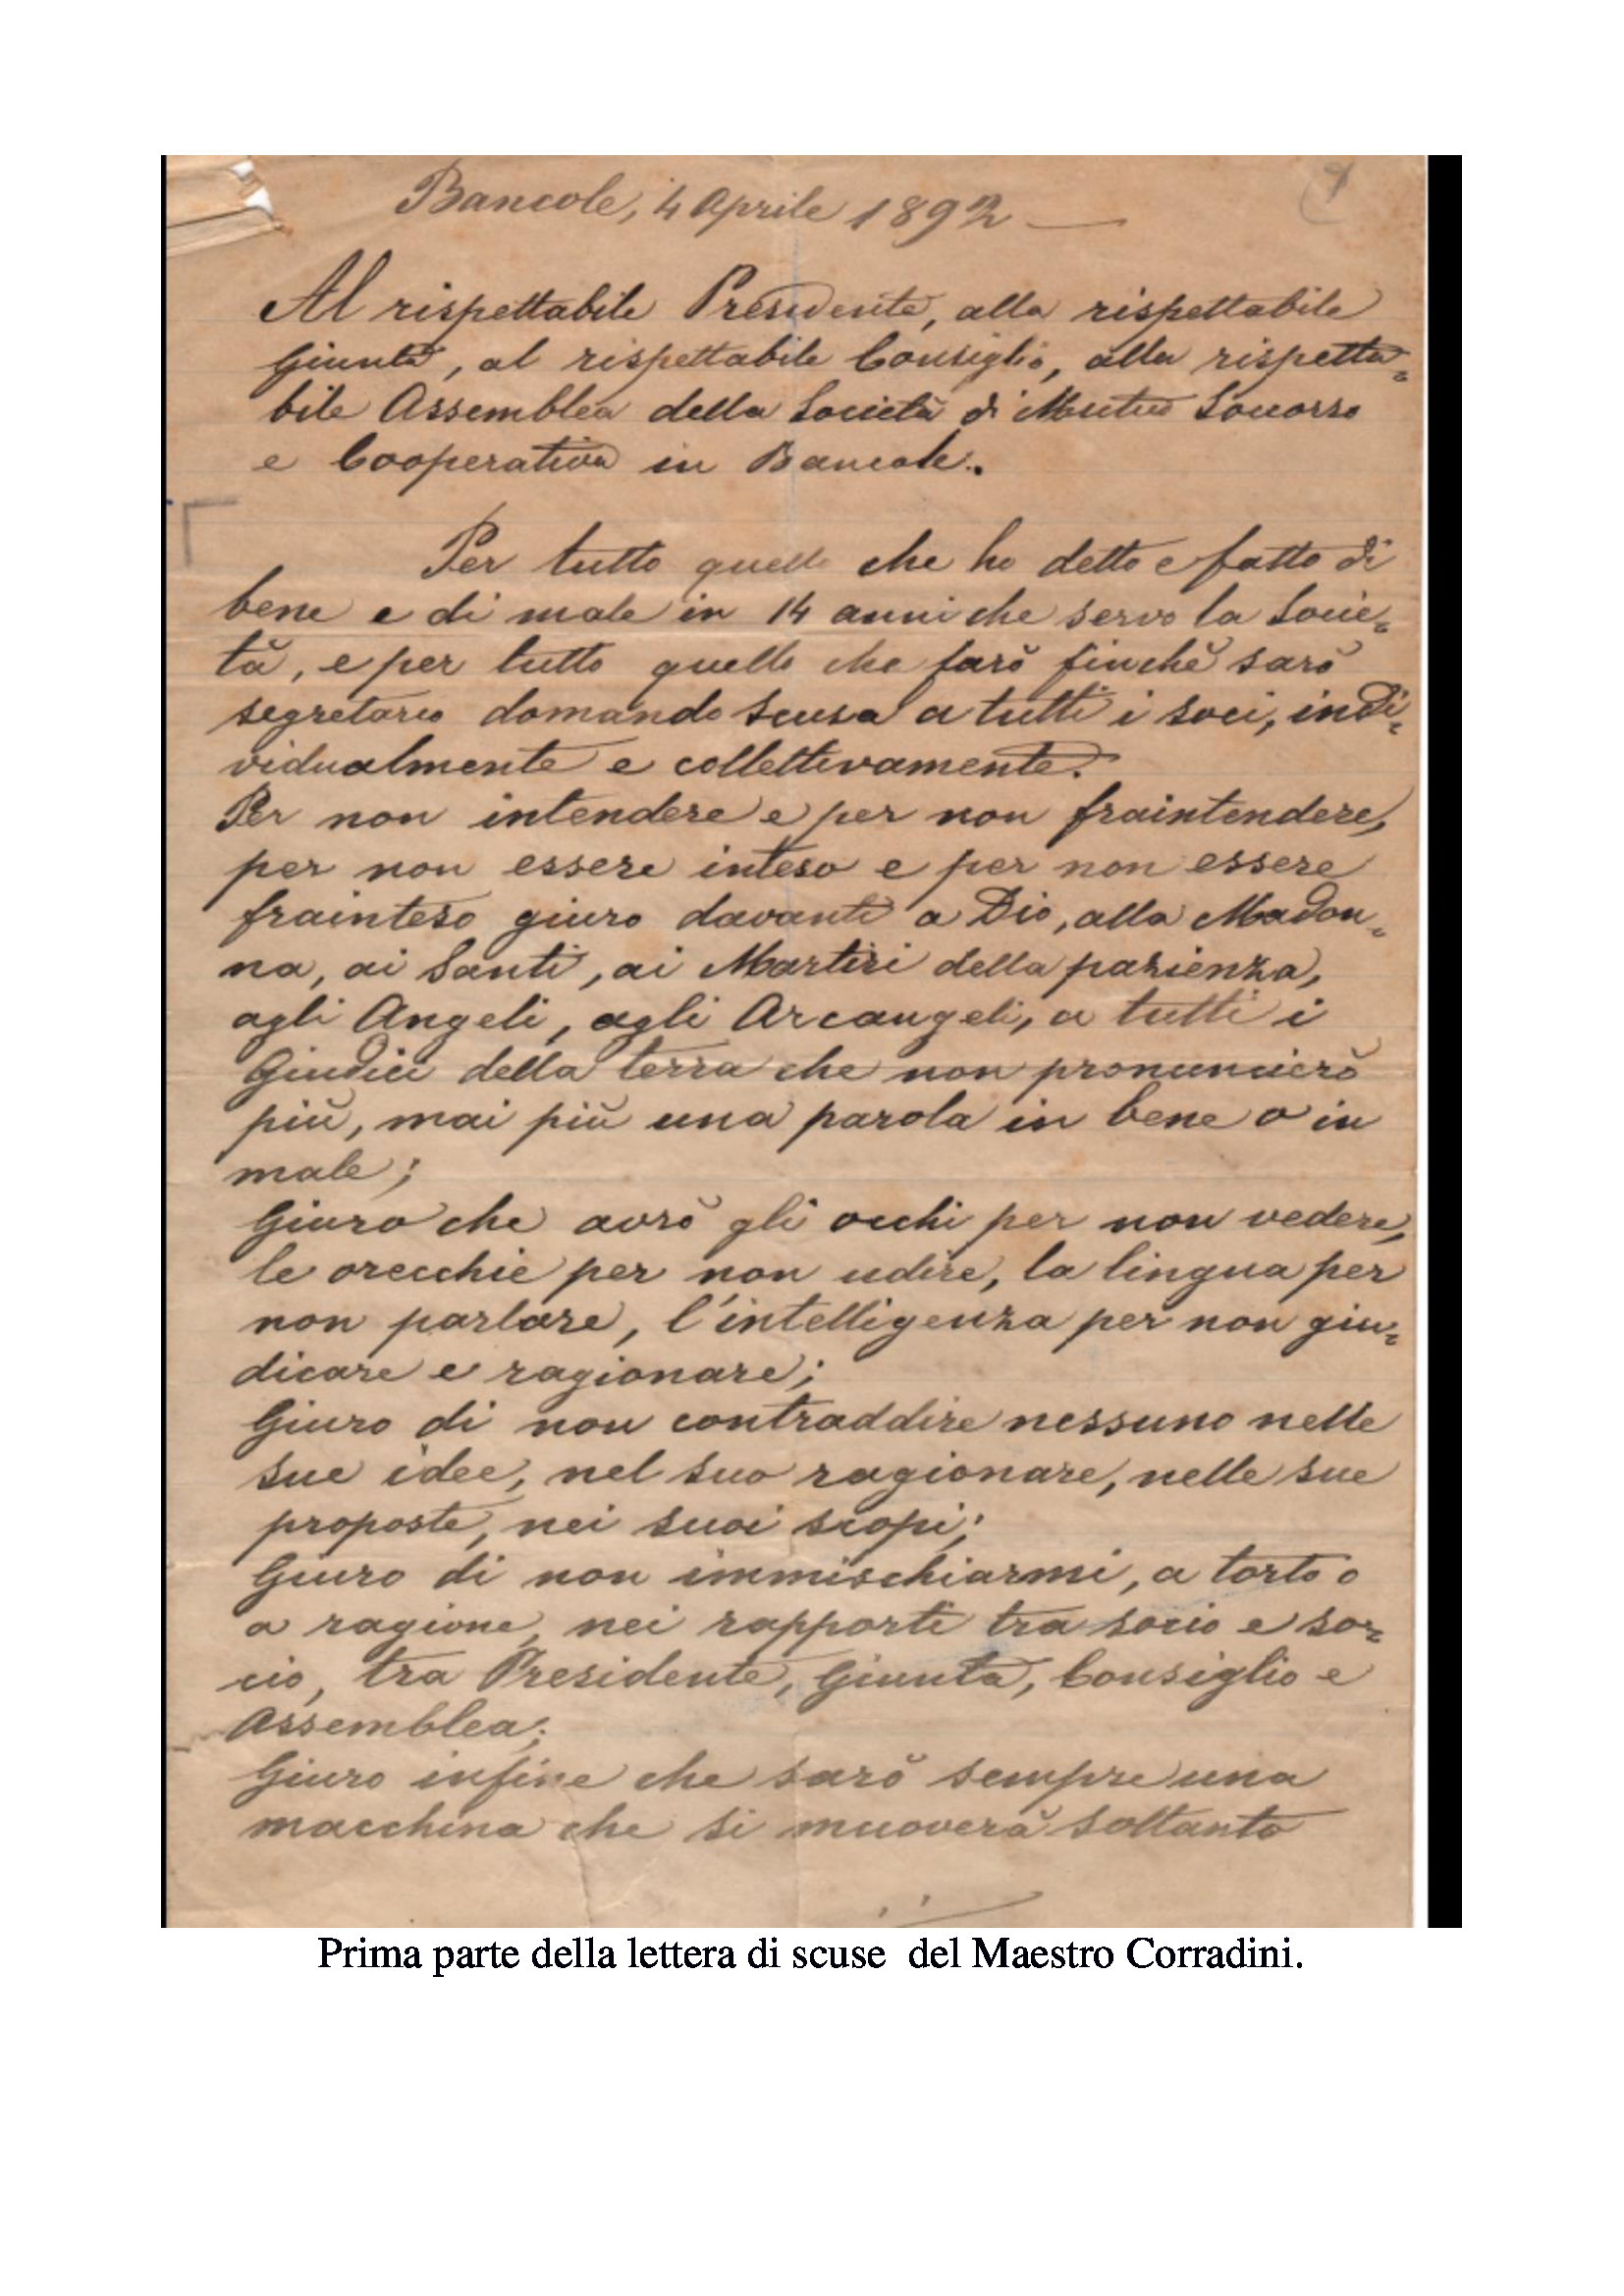 Bancole, 4 Aprile 1892
Al rispettabile Presidente, alla rispettabile
Giunta, al rispettabile Consiglio, alla rispetta=
bile Assemblea della Società di Mutuo Soccorso
e Cooperativa in Bancole.
Per tutto quello che ho detto e fatto di
bene e di male in 14 anni che servo la Socie=
tà, e per tutto quello che farò finchè sarò
segretario domando scusa a tutti i soci, indi=
vidualmente e collettivamente.
Per non intendere e per non fraintendere,
per non essere inteso e per non essere
frainteso giuro davanti a Dio, alla Madon=
na, ai Santi, ai Martiri della pazienza,
agli Angeli, agli Arcangeli, a tutti i
Giudici della terra che non pronuncierò
più, mai più una parola in bene o in
male;
Giuro che avrò gli occhi per non vedere,
le orecchie per non udire, la lingua per
non parlare, l'intelligenza per non giu=
dicare e ragionare;
Giuro di non contraddire nessuno nelle
sue idee, nel suo ragionare, nelle sue
proposte, nei suoi scopi;
Giuro di non immischiarmi, a torto o
a ragione, nei rapporti tra socio e so=
cio, tra Presidente, Giunta, Consiglio e
Assemblea;
Giuro infine che sarò sempre una
macchina che si muoverà soltanto
Prima parte della lettera di scuse del Maestro Corradini.